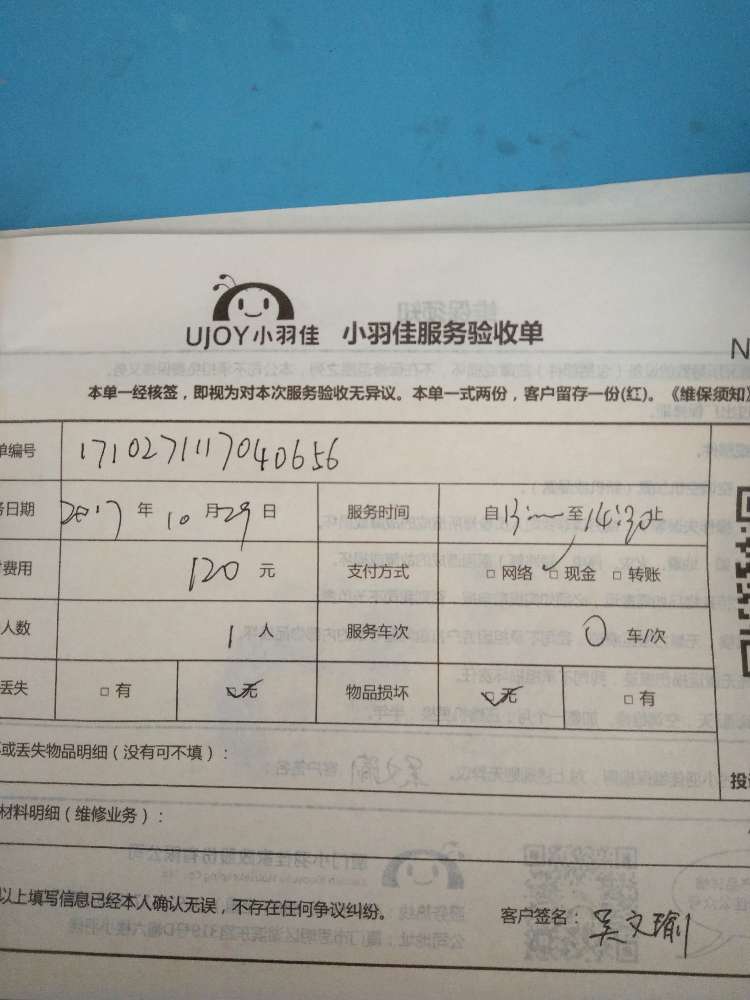 UJOY小羽佳 小羽佳服务验收单
N
本单一经核签，即视为对本次服务验收无异议。本单一式两份，客户留存一份(红)。《维保须知》
单编号 1710271117040656
务日期 2017 年 10 月 29 日 服务时间 自 13:— 至 14:30 止
费用 120 元 支付方式 □ 网络 □ 现金 □ 转账
人数 1 人 服务车次 0 车/次
丢失 □ 有 □ 无 物品损坏 □ 无 □ 有
或丢失物品明细（没有可不填）：
投
材料明细（维修业务）：
以上填写信息已经本人确认无误，不存在任何争议纠纷。 客户签名：吴文瑜